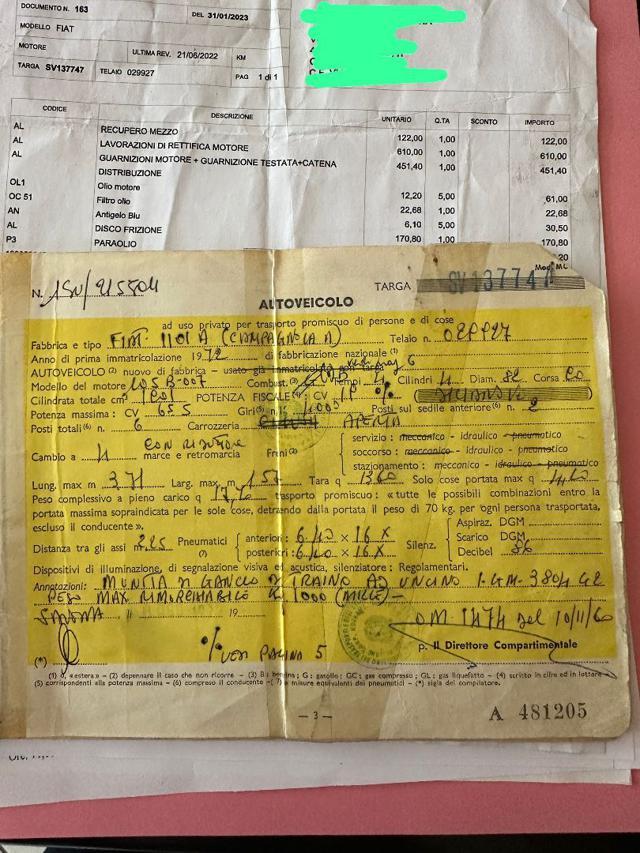 DOCUMENTO N. 163 DEL 31/01/2023
MODELLO FIAT
MOTORE ULTIMA REV. 21/06/2022 KM
TARGA SV137747 TELAIO 029927 PAG 1 di 1
CODICE DESCRIZIONE UNITARIO Q.TA SCONTO IMPORTO
AL RECUPERO MEZZO 122,00 1,00 122,00
AL LAVORAZIONI DI RETTIFICA MOTORE 610,00 1,00 610,00
AL GUARNIZIONI MOTORE + GUARNIZIONE TESTATA+CATENA 451,40 1,00 451,40
DISTRIBUZIONE
OL1 Olio motore 12,20 5,00 61,00
OC 51 Filtro olio 22,68 1,00 22,68
AN Antigelo Blu 6,10 5,00 30,50
AL DISCO FRIZIONE 170,80 1,00 170,80
P3 PARAOLIO
N. TARGA SV137747
AUTOVEICOLO
ad uso privato per trasporto promiscuo di persone e di cose
Fabbrica e tipo FIAT 1101 A (CAMPAGNOLA A) Telaio n.
Anno di prima immatricolazione 1972 di fabbricazione nazionale (1)
AUTOVEICOLO (2) nuovo di fabbrica - usato già immatricolato
Modello del motore Combust. (3) Tempi 4 Cilindri 4 Diam. 82 Corsa
Cilindrata totale cm³ 1901 POTENZA FISCALE (4) CV
Potenza massima: CV Giri (5) Posti sul sedile anteriore (6) n. 2
Posti totali (6) n. 6 Carrozzeria APERTA
servizio: meccanico - idraulico - pneumatico
Cambio a 4 CON RIDUTTORE marce e retromarcia Freni (2) soccorso: meccanico - idraulico - pneumatico
stazionamento: meccanico - idraulico - pneumatico
Lung. max m 3,71 Larg. max m 1,57 Tara q 1360 Solo cose portata max q
Peso complessivo a pieno carico q trasporto promiscuo: «tutte le possibili combinazioni entro la
portata massima sopraindicata per le sole cose, detraendo dalla portata il peso di 70 kg. per ogni persona trasportata,
escluso il conducente».
Aspiraz. DGM
Distanza tra gli assi m 2.25 Pneumatici (7) anteriori: 6/40 × 16 X Silenz. Scarico DGM
posteriori: 6/40 × 16 X Decibel 86
Dispositivi di illuminazione, di segnalazione visiva ed acustica, silenziatore: Regolamentari.
Annotazioni: MUNITA DI GANCIO DI TRAINO AD UNCINO
PESO MAX RIMORCHIABILE K 1000 (MILLE)-
SAVONA 19 DM. 1474 del 10/11/60
p. Il Direttore Compartimentale
(*) % VEDI PAGINA 5
(1) o, «estera» - (2) depennare il caso che non ricorre - (3) B: benzina; G: gasolio; GC: gas compresso; GL: gas liquefatto - (4) scritto in cifre ed in lettere -
(5) corrispondenti alla potenza massima - (6) compreso il conducente - (7) a misure equivalenti dei pneumatici - (*) sigla del compilatore.
— 3 —
A 481205